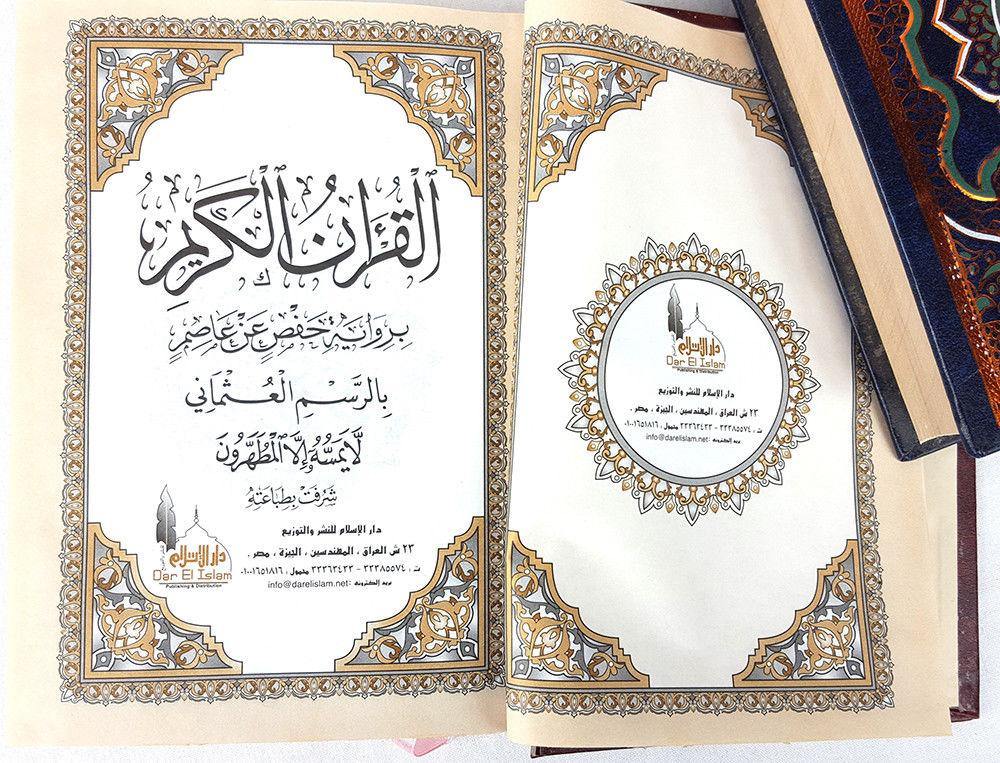 ٱلْقُرْآنُ ٱلْكَرِيمِ
بِرِوَايَةِ حَفْصٍ عَنْ عَاصِمٍ
بِالرَّسْمِ الْعُثْمَانِي
لَّا يَمَسُّهُۥٓ إِلَّا ٱلْمُطَهَّرُونَ
شَرُفَتْ بِطِبَاعَتِهِ
دار الإسلام
Dar El Islam
Publishing & Distribution
دار الإسلام للنشر والتوزيع
٢٣ ش العراق ، المهندسين ، الجيزة ، مصر .
ت : ٣٣٣٨٥٥٧٤ - ٣٣٣٦٣٤٣٣ محمول : ٠١٠٠١٦٥١٨١٦
بريد إلكترونه :info@darelislam.net
دار الإسلام
Dar El Islam
Publishing & Distribution
دار الإسلام للنشر والتوزيع
٢٣ ش العراق ، المهندسين ، الجيزة ، مصر .
ت : ٣٣٣٨٥٥٧٤ - ٣٣٣٦٣٤٣٣ محمول : ٠١٠٠١٦٥١٨١٦
بريد إلكترونه :info@darelislam.net